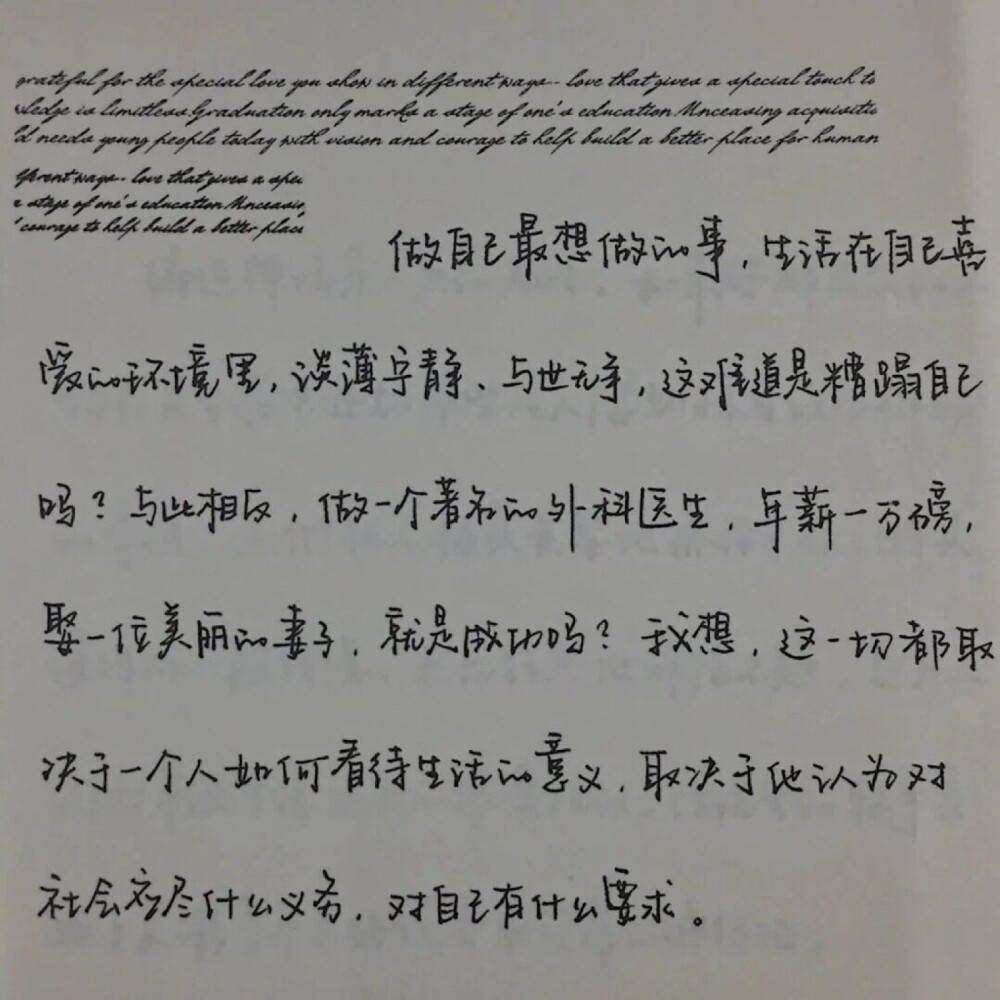 grateful for the special love you show in different ways-- love that gives a special touch to
wledge is limitless Graduation only marks a stage of one's education Unceasing acquisitio
ld needs young people today with vision and courage to help build a better place for human
fferent ways-- love that gives a spec
e stage of one's education Unceasin
courage to help build a better place
做自己最想做的事,生活在自己喜
爱的环境里,淡薄宁静、与世无争,这难道是糟蹋自己
吗?与此相反,做一个著名的外科医生,年薪一万磅,
娶一位美丽的妻子,就是成功吗?我想,这一切都取
决于一个人如何看待生活的意义,取决于他认为对
社会应尽什么义务,对自己有什么要求。